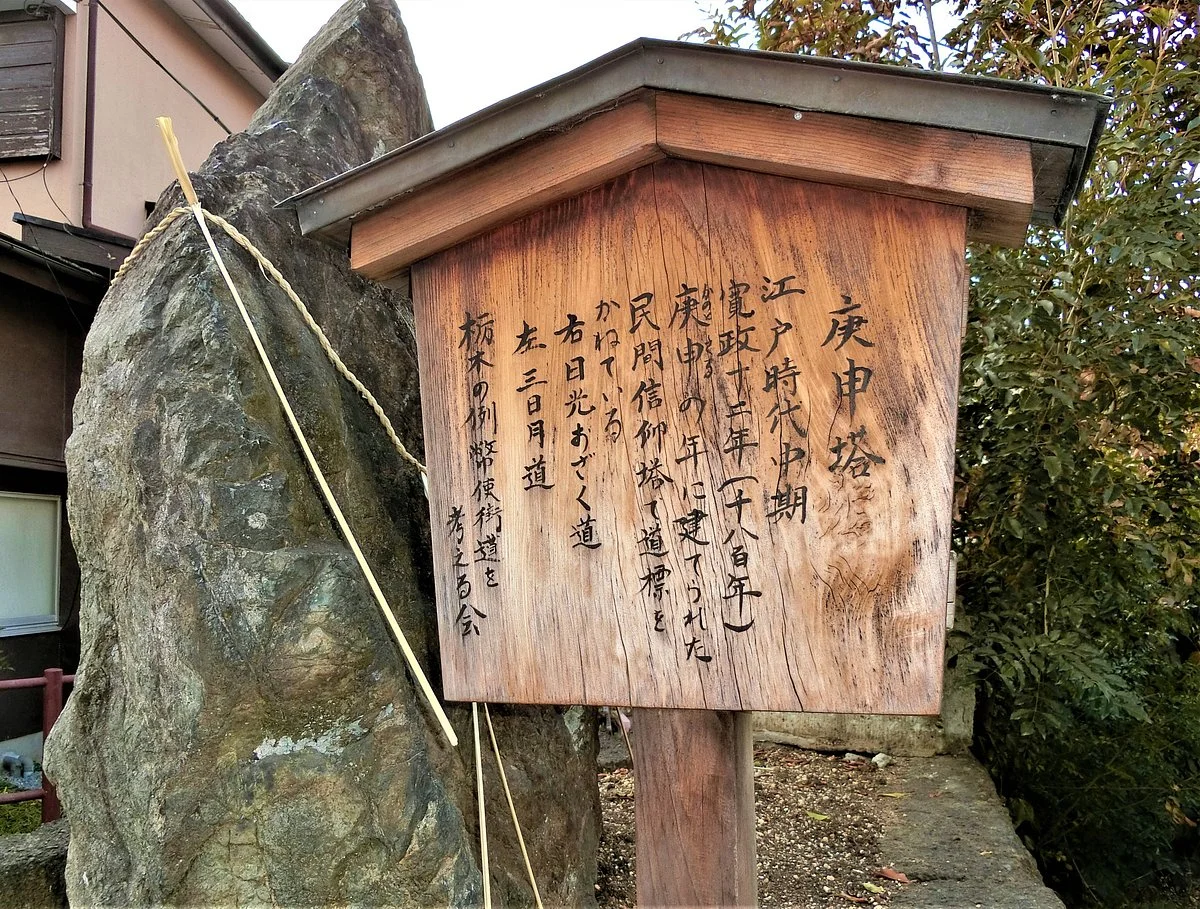 庚申塔
江戸時代中期
寛政十二年(千八百年)
庚申の年に建てられた
民間信仰塔て道標を
かねている
右日光おざく道
左三日月道
栃木の例幣使街道を
考える会